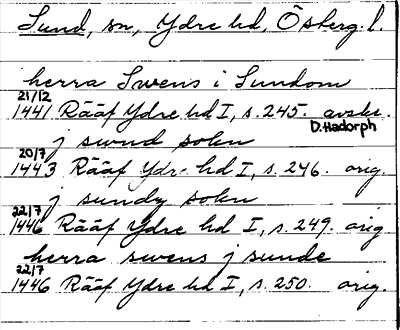 Sund, sn, Ydre hd, Ösberg. l.
herra Swens i Sundom
21/12
1441 Rääf Ydre hd I, s. 245. avskr.
D. Hadorph
j swnd sokn
20/7
1443 Rääf Ydre hd I, s. 246. orig.
j sundy sokn
22/7
1446 Rääf Ydre hd I, s. 249. orig
herra swens j sunde
22/7
1446 Rääf Ydre hd I, s. 250. orig.